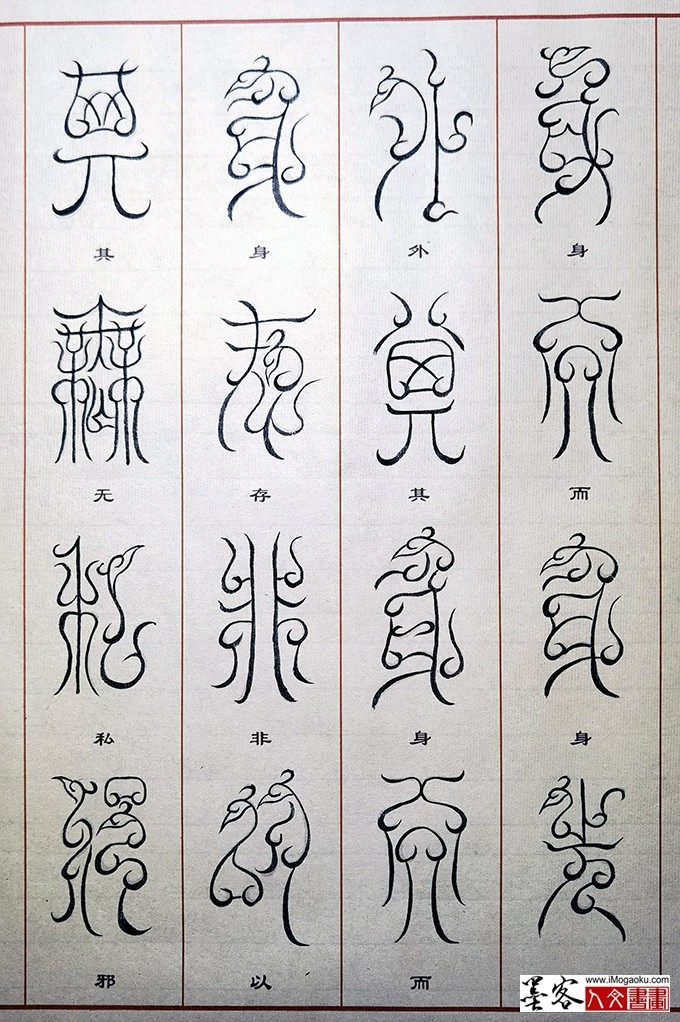 身而身先
外其身而
身存非以
其无私邪
www.iMogaoku.com
墨客
人文書畫